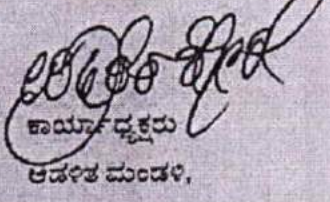 ಕಾರ್ಯಾಧ್ಯಕ್ಷರು
ಆಡಳಿತ ಮಂಡಳಿ,